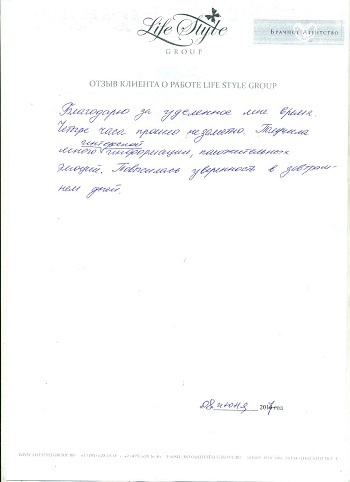 Life Style
GROUP
БРАЧНОЕ АГЕНТСТВО
ОТЗЫВ КЛИЕНТА О РАБОТЕ LIFE STYLE GROUP
Благодарю за уделенное мне время.
Четыре часа прошло незаметно. Получила
интересной
много информации, положительных
эмоций. Повысилась уверенность в завтраш-
нем дней.
08 июня, 201 год